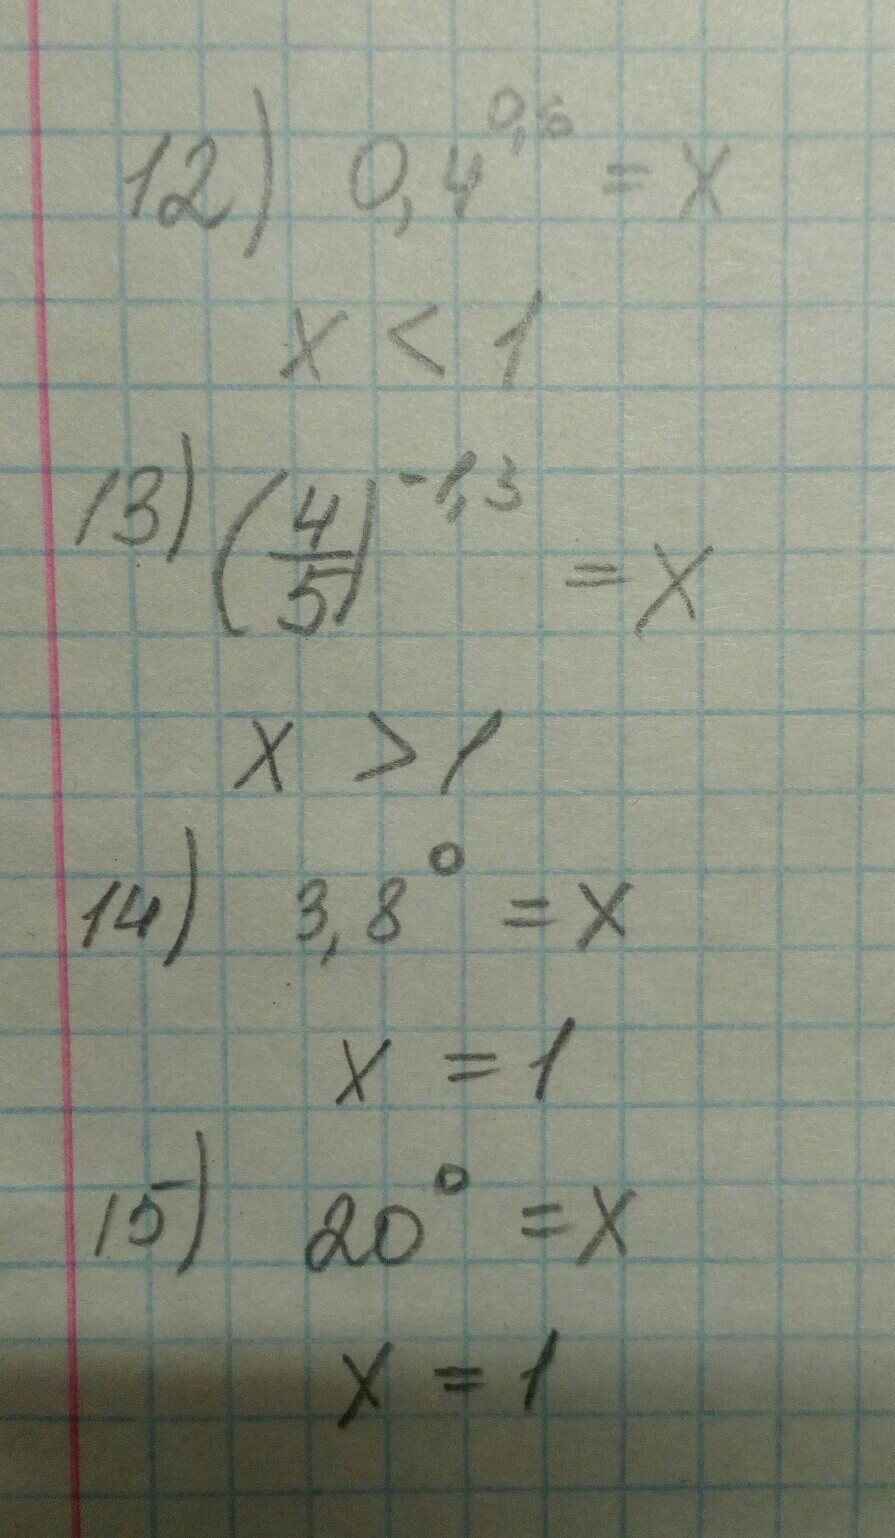 12) 0,4^0,6 = x
x < 1
13) (4/5)^-1,3 = x
x > 1
14) 3,8^0 = x
x = 1
15) 20^0 = x
x = 1